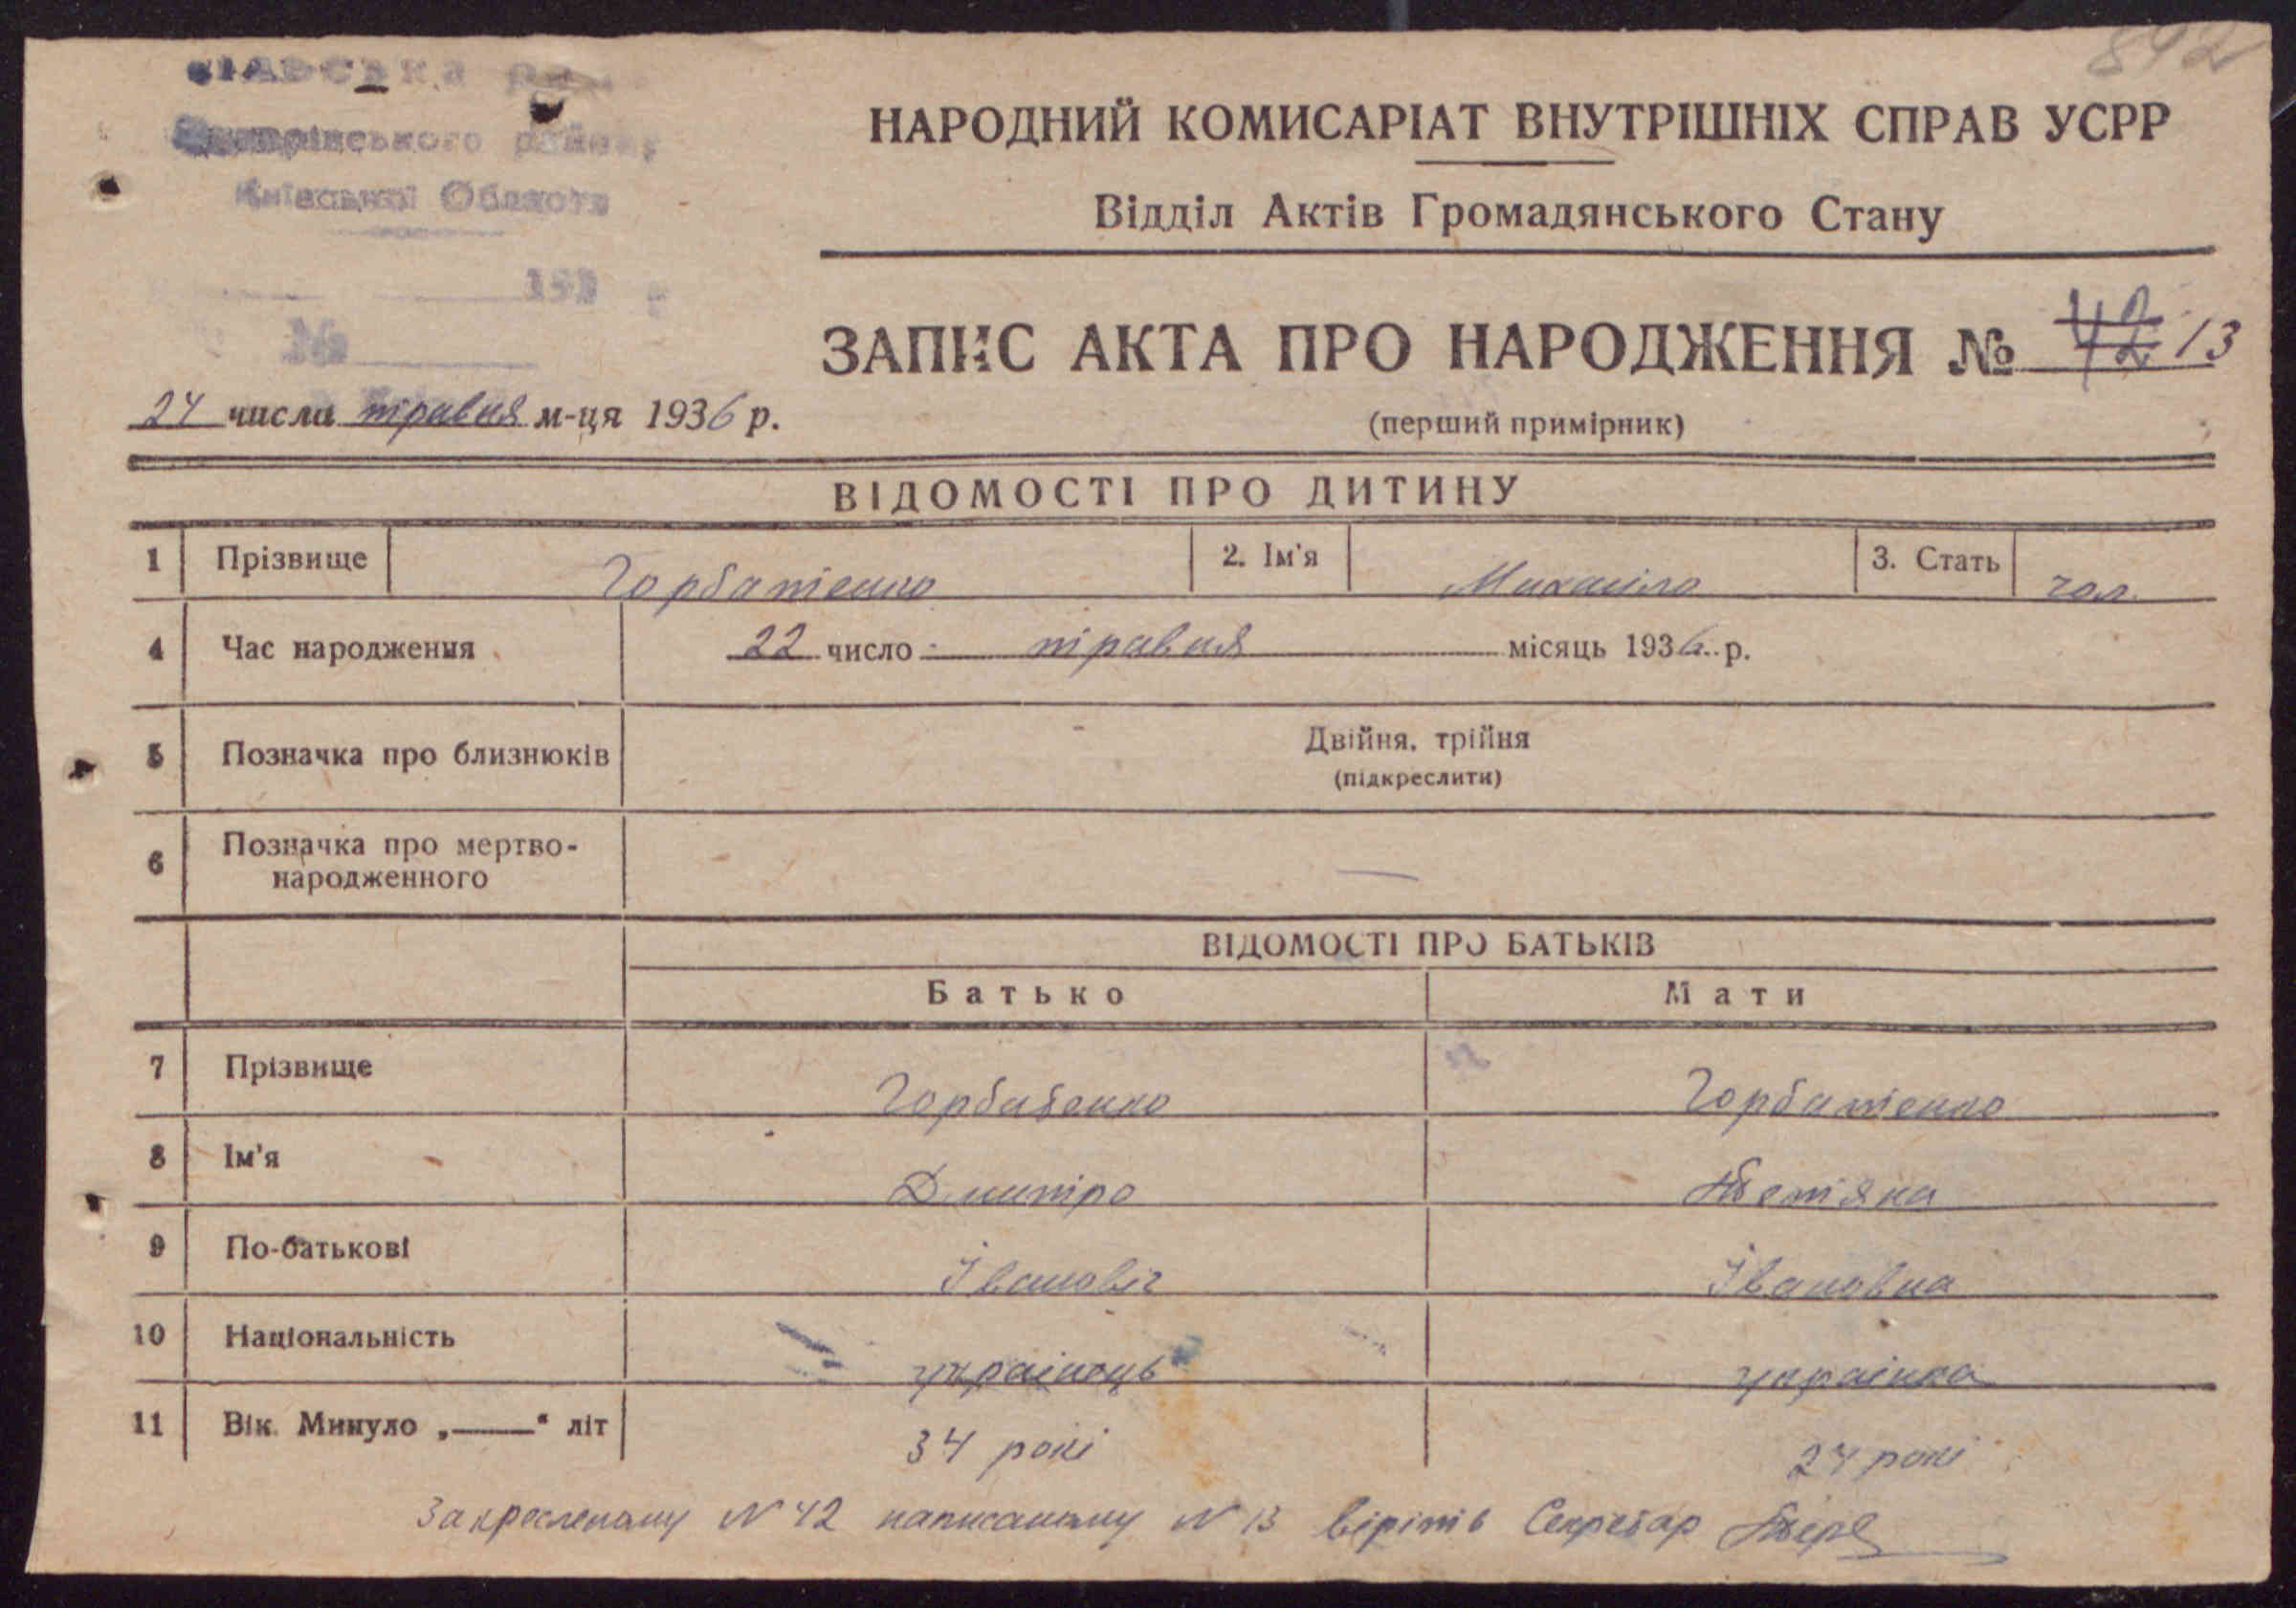 892
НАРОДНИЙ КОМИСАРІАТ ВНУТРІШНІХ СПРАВ УСРР
Відділ Актів Громадянського Стану
району
Київської Області
193
№
ЗАПИС АКТА ПРО НАРОДЖЕННЯ № 42 13
24 числа травня м-ця 1936 р.
(перший примірник)
ВІДОМОСТІ ПРО ДИТИНУ
1 Прізвище Горбатенко 2. Ім'я Михайло 3. Стать чол.
4 Час народження 22 число травня місяць 1936 р.
5 Позначка про близнюків Двійня, трійня
(підкреслити)
6 Позначка про мертво-
народженного —
ВІДОМОСТІ ПРО БАТЬКІВ
Батько Мати
7 Прізвище Горбатенко Горбатенко
8 Ім'я Дмитро Тетяна
9 По-батькові Івановіч Івановна
10 Національність українець українка
11 Вік. Минуло „——" літ 34 рокі 24 рокі
Закресленому N 42 написаному N 13 вірить Секретар